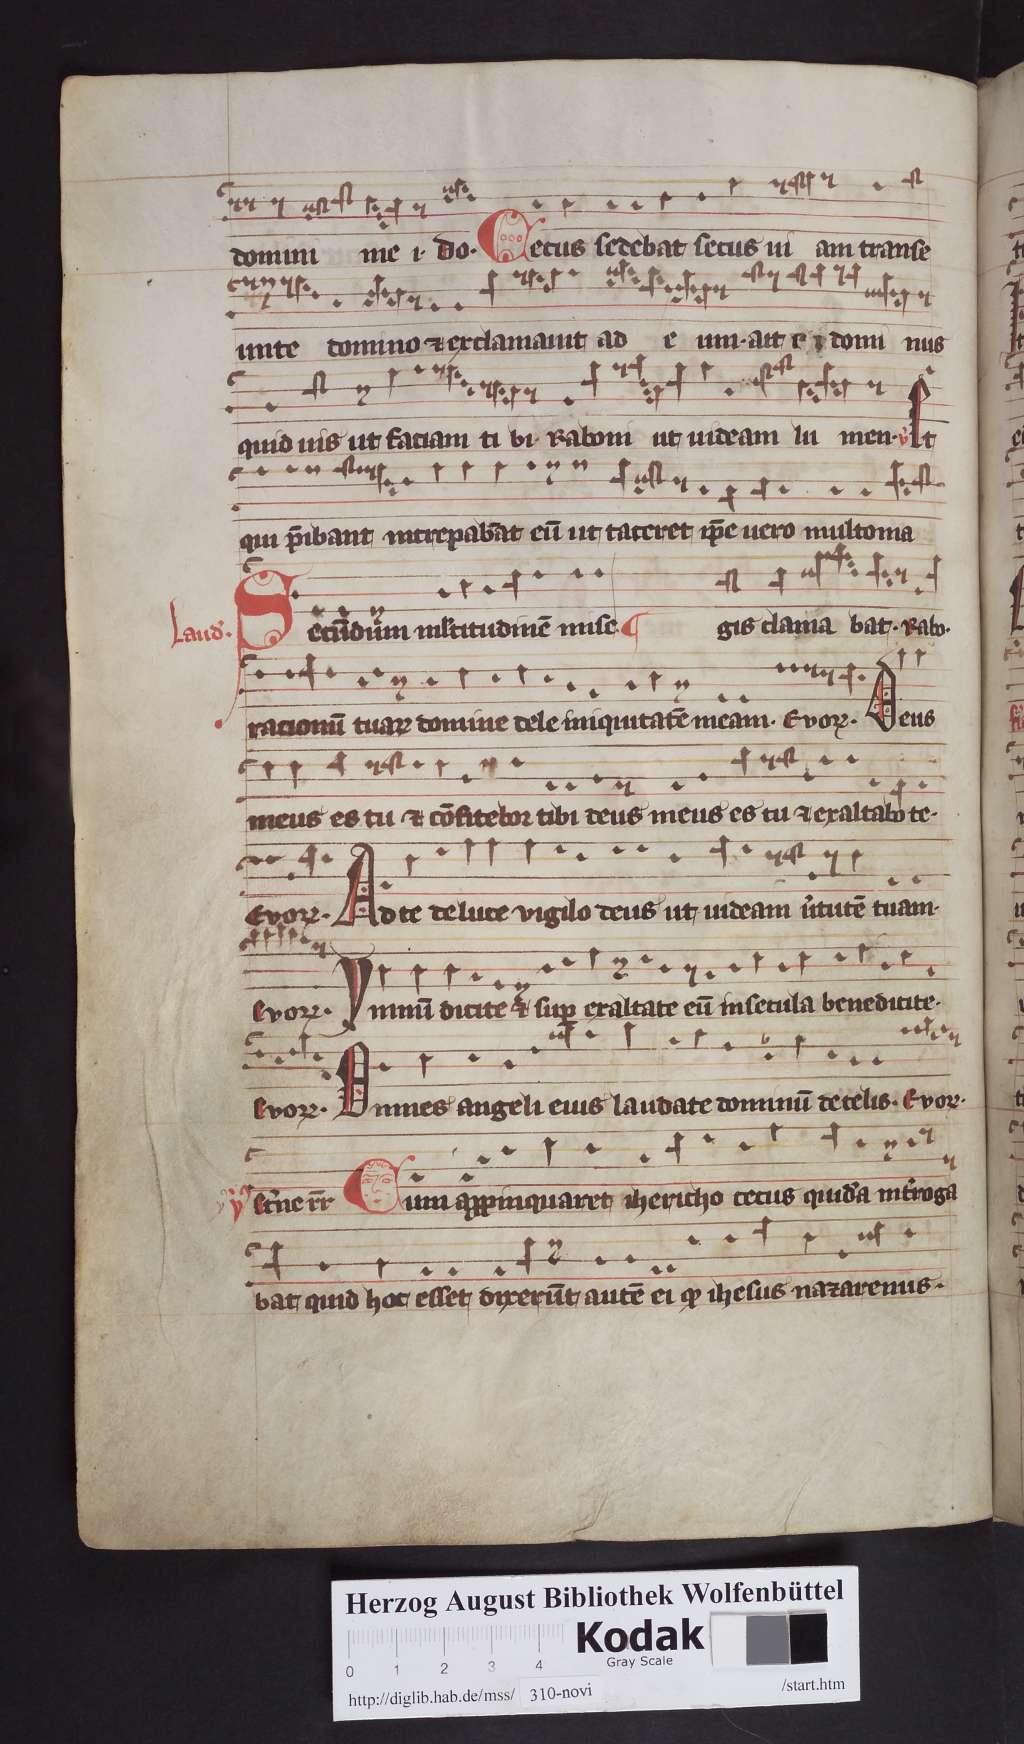 domini me i. Do. Cecus sedebat secus ui am transe
unte domino ⁊ exclamauit ad e um. ait e i domi nus
quid uis ut faciam ti bi. Raboni ut uideam lu men. ꝟ Et
qui p̄ibant increpabāt eū ut taceret ip̄e uero multo ma
Laud. Secundum multitudinē mise gis clama bat. Rabo.
rationū tuaꝝ domine dele iniquitatē meam. Evoꝝ. Deus
meus es tu ⁊ cōfitebor tibi deus meus es tu ⁊ exaltabo te.
Evoꝝ. Ad te de luce vigilo deus ut uideam v̓tutē tuam.
Evoꝝ. Ymnū dicite ⁊ suꝑ exaltate eū in secula benedicite.
Evoꝝ. Omnes angeli eius laudate dominū de celis. Evoꝝ.
Cum appropinquaret ihericho cecus quidā int̓roga
bat quid hoc esset dixerūt autē ei ꝙ ihesus nazarenus.
Herzog August Bibliothek Wolfenbüttel
Kodak
Gray Scale
0 1 2 3 4
http://diglib.hab.de/mss/ 310-novi /start.htm